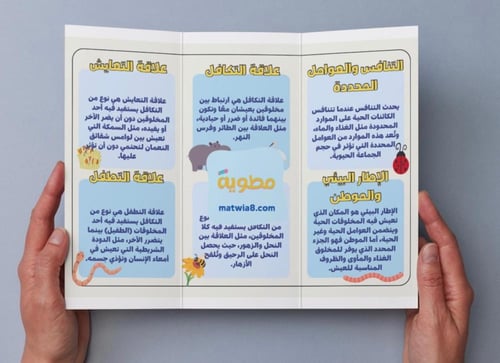 التنافس والعوامل
المحددة
يحدث التنافس عندما تتنافس
الكائنات الحية على الموارد
المحدودة مثل الغذاء والماء،
وتُعد هذه الموارد من العوامل
المحددة التي تؤثر في حجم
الجماعة الحيوية.
الإطار البيئي
والموطن
الإطار البيئي هو المكان الذي
تعيش فيه المخلوقات الحية
ويتضمن العوامل الحية وغير
الحية، أما الموطن فهو الجزء
المحدد الذي يوفر للمخلوق
الغذاء والمأوى والظروف
المناسبة للعيش.
علاقة التكافل
علاقة التكافل هي ارتباط بين
مخلوقين يعيشان معًا وتكون
بينهما فائدة أو ضرر أو حيادية،
مثل العلاقة بين الطائر وفرس
النهر.
مطوية
matwia8.com
نوع
من التكافل يستفيد فيه كلا
المخلوقين، مثل العلاقة بين
النحل والزهور، حيث يحصل
النحل على الرحيق وتُلقح
الأزهار.
علاقة التعايش
علاقة التعايش هي نوع من
التكافل يستفيد فيه أحد
المخلوقين دون أن يضر الآخر
أو يفيده، مثل السمكة التي
تعيش بين لوامس شقائق
النعمان لتحتمي دون أن تؤثر
عليها.
علاقة التطفل
علاقة التطفل هي نوع من
التكافل يستفيد فيه أحد
المخلوقات (الطفيل) بينما
يتضرر الآخر، مثل الدودة
الشريطية التي تعيش في
أمعاء الإنسان وتؤذي جسمه.